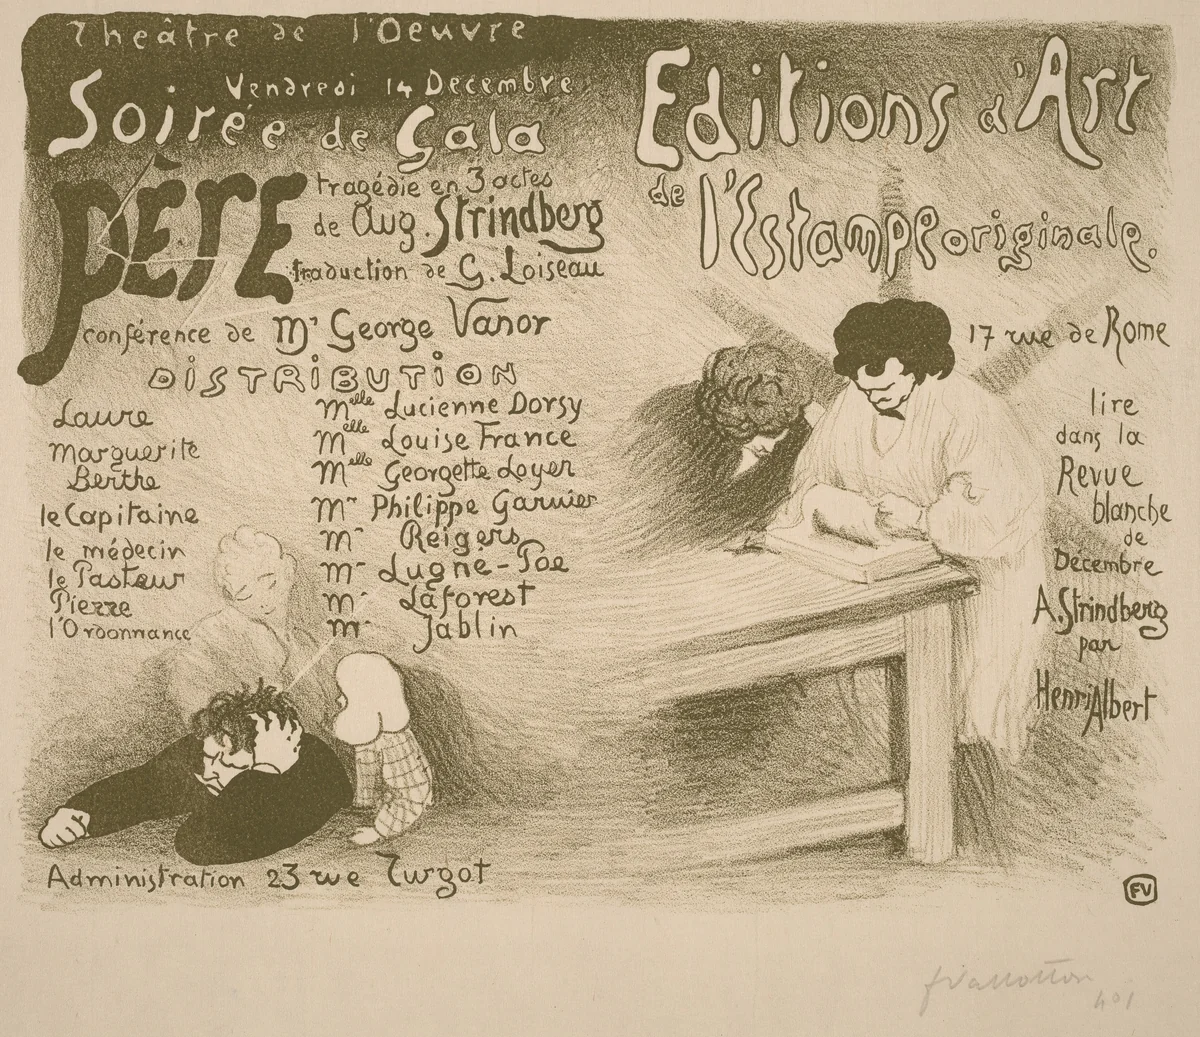 Theâtre de l'Oeuvre
Vendredi 14 Decembre
Soirée de Gala
PÈRE
tragédie en 3 actes
de Aug. Strindberg
traduction de G. Loiseau
conférence de Mr George Vanor
DISTRIBUTION
Laure Melle Lucienne Dorsy
Marguerite Melle Louise France
Berthe Melle Georgette Loyer
le Capitaine Mr Philippe Garnier
le médecin Mr Réigers
le Pasteur Mr Lugné-Poe
Pierre Mr Laforest
l'Ordonnance Mr Jablin
Administration 23 rue Turgot
Editions d'Art
de l'Estampe originale.
17 rue de Rome
lire
dans la
Revue
blanche
de
Décembre
A. Strindberg
par
Henri Albert
FV
fVallotton